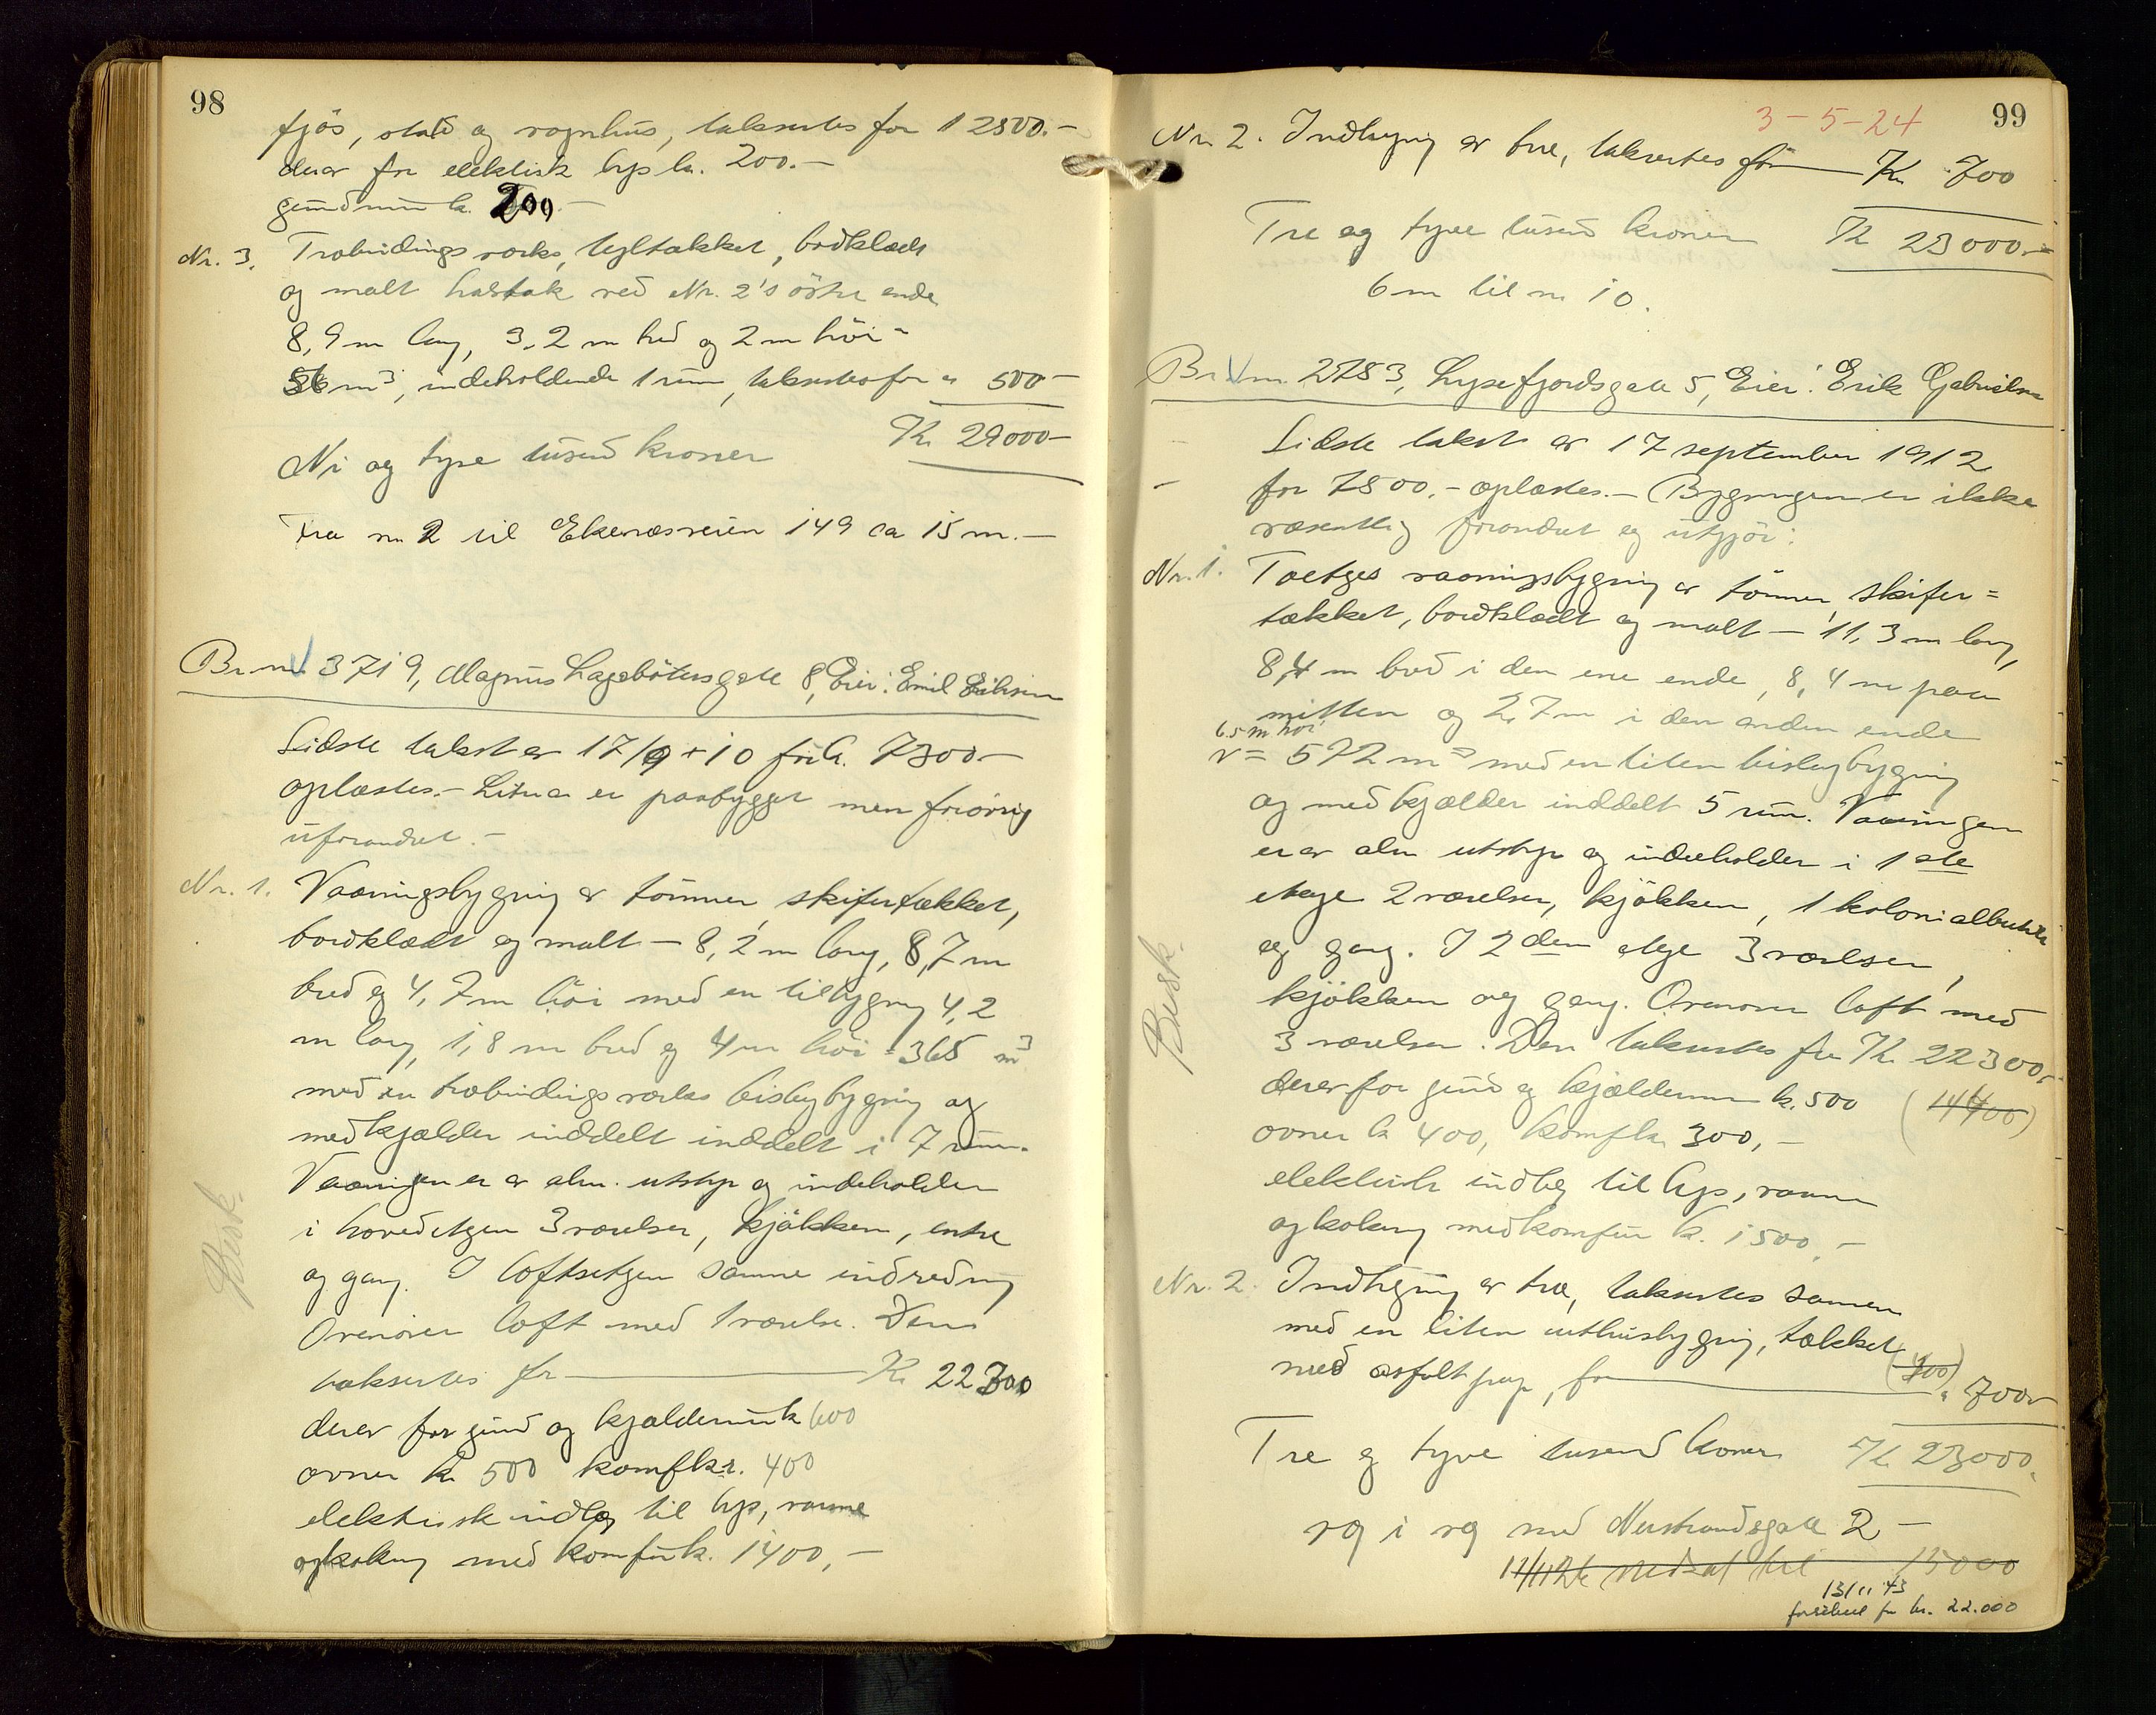 98
fjös, stald og vognhus, taksertes for 12500.-
derav for elektrisk lys kr. 200.-
grundmur kr. 200.-
Nr. 3. Træbindingsverks, tegltækket, bordklædt
og malt halvtak ved Nr. 2's östre ende
8,9 m lang, 3,2 m bred og 2 m höi =
56 m³, indeholdende 1 rum, taksertes for " 500-
Kr 29000-
Ni og tyve tusend kroner
Fra nr. 2 til Ekenæsveien 149 ca 15 m.-
Br. nr. 3719, Magnus Lagabötersgate 8, Eier: Emil
Sidste takst av 17/9 + 10 for kr. 7300-
oplæstes.- Litra a er paabygget men forövrig
uforandret.-
Nr. 1. Vaaningsbygning av tömmer, skifertækket,
bordklædt og malt - 8,2 m lang, 8,7 m
bred og 4,7 m höi med en tilbygning 4,2
m lang, 1,8 m bred og 4 m höi = 365 m³
med en træbindingsverks bislagbygning og
med kjælder inddelt inddelt i 7 rum.
Vaaningen er av alm. utstyr og indeholder
i hovedetagen 3 værelser, kjökken, entre
og gang. I loftsetagen samme indredning
Ovenover loft med 1 værelse. Den
taksertes for Kr 22300
derav for grund og kjældermur k 600
ovner kr 500 komf kr. 400
elektrisk indlæg til lys, varme
og kokning med komfur k. 1400,-
Besk.
99
3-5-24
Nr. 2. Indhegning av træ, taksertes for Kr 700
Tre og tyve tusend kroner Kr 23000.-
6 m til nr 10.
Br. nr. 2783, Lysefjordsgate 5, Eier: Erik Gabrielsen
Sidste takst av 17 september 1912
for 7800.- oplæstes.- Bygningen er ikke
væsentlig forandret og utgjör:
Nr. 1. Toetages vaaningsbygning av tömmer, skifer=
tækket, bordklædt og malt - 11,3 m lang,
8,4 m bred i den ene ende, 8,4 m paa
midten og 2,7 m i den anden ende
6.5 m höi
v = 572 m³ med en liten bislagbygning
og med kjælder inddelt 5 rum. Vaaningen
er av alm utstyr og indeholder i 1ste
etage 2 værelser, kjökken, 1 kolonialbutik
og gang. I 2den etage 3 værelser,
kjökken og gang. Ovenover loft med
3 værelser. Den taksertes for Kr 22300,-
derav for grund og kjældermur k. 500 (14400)
ovner kr 400, komf kr 300,-
elektrisk indlæg til lys, varme
og kokning med komfur k. 1500,-
Nr. 2. Indhegning av træ, taksertes sammen
med en liten uthusbygning, tækket
med asfaltpap, for (400) " 700-
Tre og tyve tusend kroner Kr 23000,
væg i væg med Nerstrandsgate 2 -
nedsat til 15000
13/11 43
forsikret for kr. 22.000
Besk.